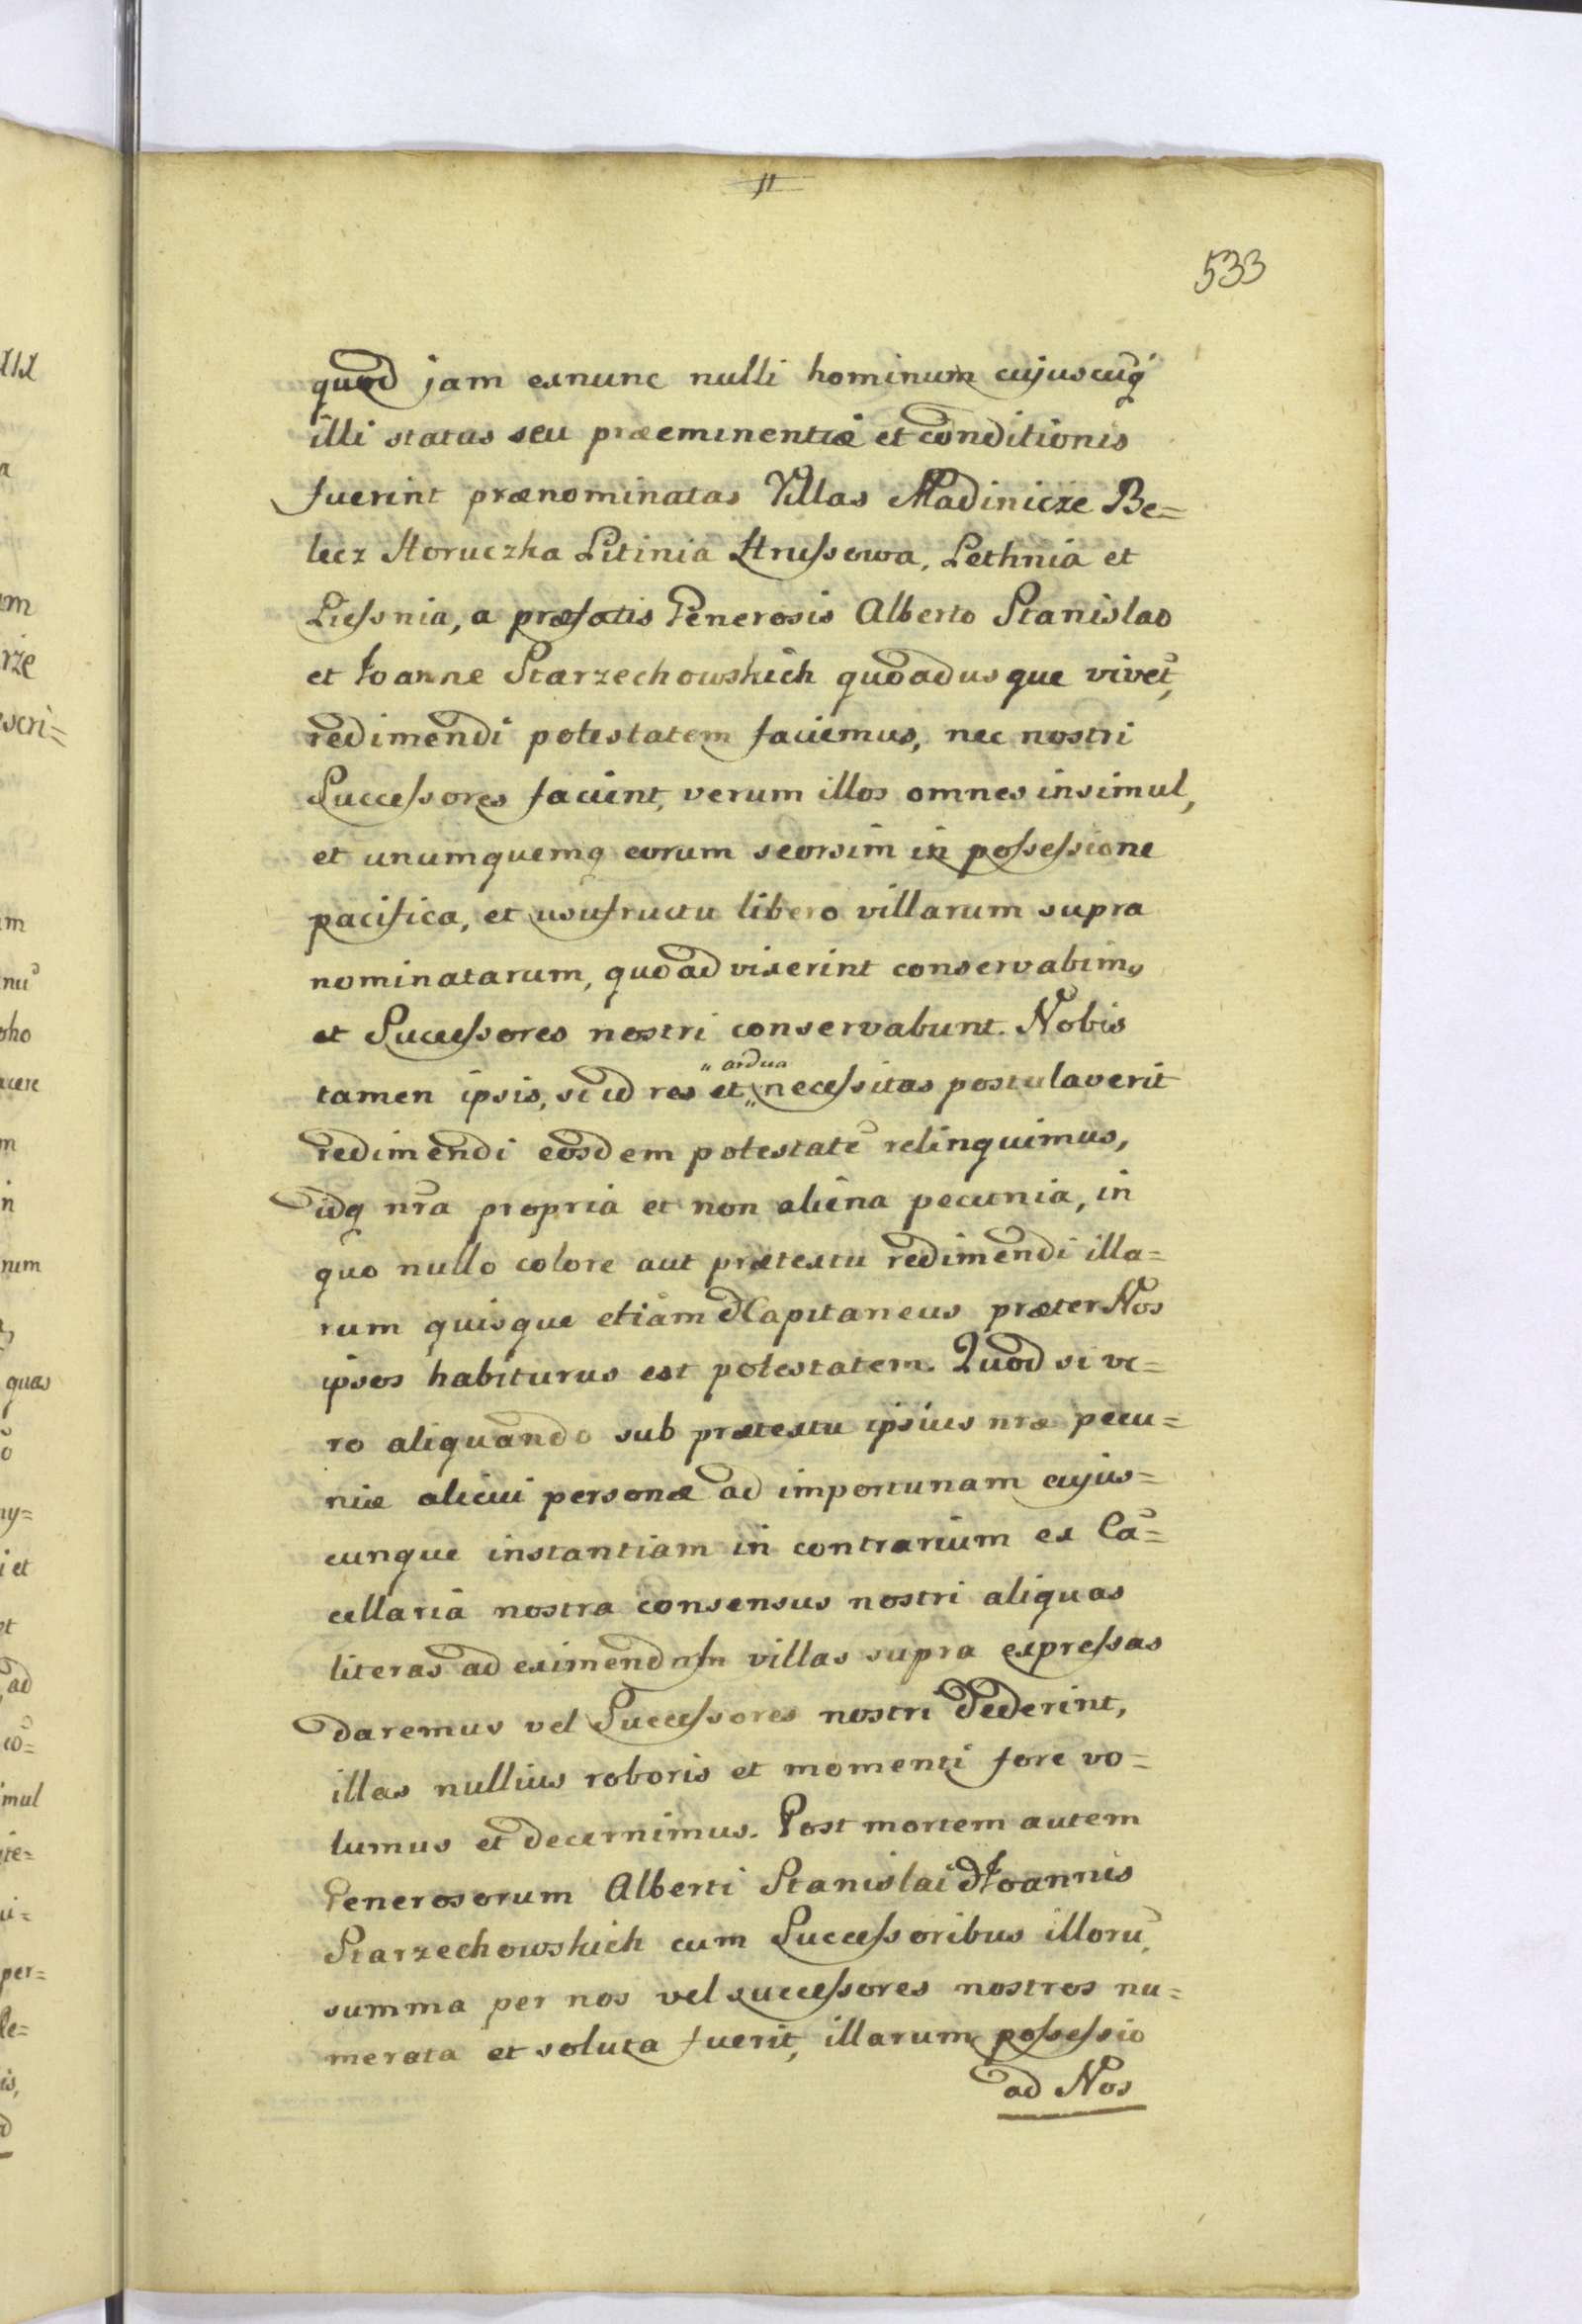 533
quod jam exnunc nulli hominum cujuscuq́
illi status seu præeminentiæ et conditionis
fuerint prænominatas Villas Madinicze Be=
lecz Horuczka Litinia Hrussowa, Lethnia et
Liessnia, a præfatis Generosis Alberto Stanislao
et Joanne Starzechowskich quoadusque vivēt,
redimendi potestatem faciemus, nec nostri
Successores facient, verum illos omnes insimul,
et unumquemq eorum seorsim in possessione
pacifica, et usufructu libero villarum supra
nominatarum, quoad vixerint conservabimꝰ
et Successores nostri conservabunt. Nobis
tamen ipsis, si id res et "ardua necessitas postulaverit
redimendi eosdem potestatē relinquimus,
idq nr̃a propria et non aliena pecunia, in
quo nullo colore aut prætextu redimendi illa=
rum quisque etiam Capitaneus præter Nos
ipsos habiturus est potestatem. Quod si ve=
ro aliquando sub prætextu ipsius nræ pecu=
niæ alicui personæ ad importunam cujus=
cunque instantiam in contrarium ex Cā=
cellaria nostra consensus nostri aliquas
literas ad eximendum villas supra expressas
daremus vel Successores nostri dederint,
illas nullius roboris et momenti fore vo=
lumus et decernimus. Post mortem autem
Generosorum Alberti Stanislai & Joannis
Starzechowskich cum Successoribus illorū,
summa per nos vel successores nostros nu=
merata et soluta fuerit, illarum possessio
ad Nos